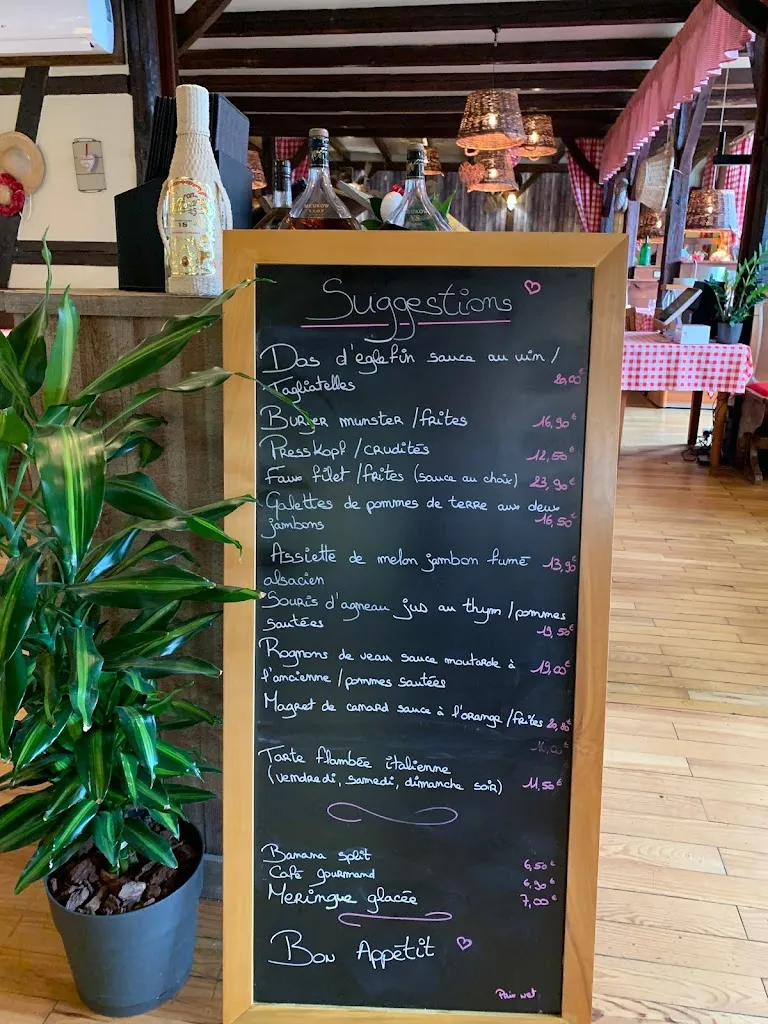 MEUKOW
V.S.O.P
MEUKOW
VS
Suggestions
Dos d'églefin sauce au vin /
Tagliatelles 20,00€
Burger munster /frites 16,90€
Presskopf /crudités 12,50€
Faux filet /frites (sauce au choix) 23,90€
Galettes de pommes de terre aux deux
jambons 16,50€
Assiette de melon jambon fumé 13,90€
alsacien
Souris d'agneau jus au thym /pommes
sautées 19,50€
Rognons de veau sauce moutarde à 19,00€
l'ancienne /pommes sautées
Magret de canard sauce à l'orange /frites 20,80€
Tarte flambée italienne
(vendredi, samedi, dimanche soir) 11,50€
Banana split 6,50€
Café gourmand 6,90€
Meringue glacée 7,00€
Bon Appétit
Prix net